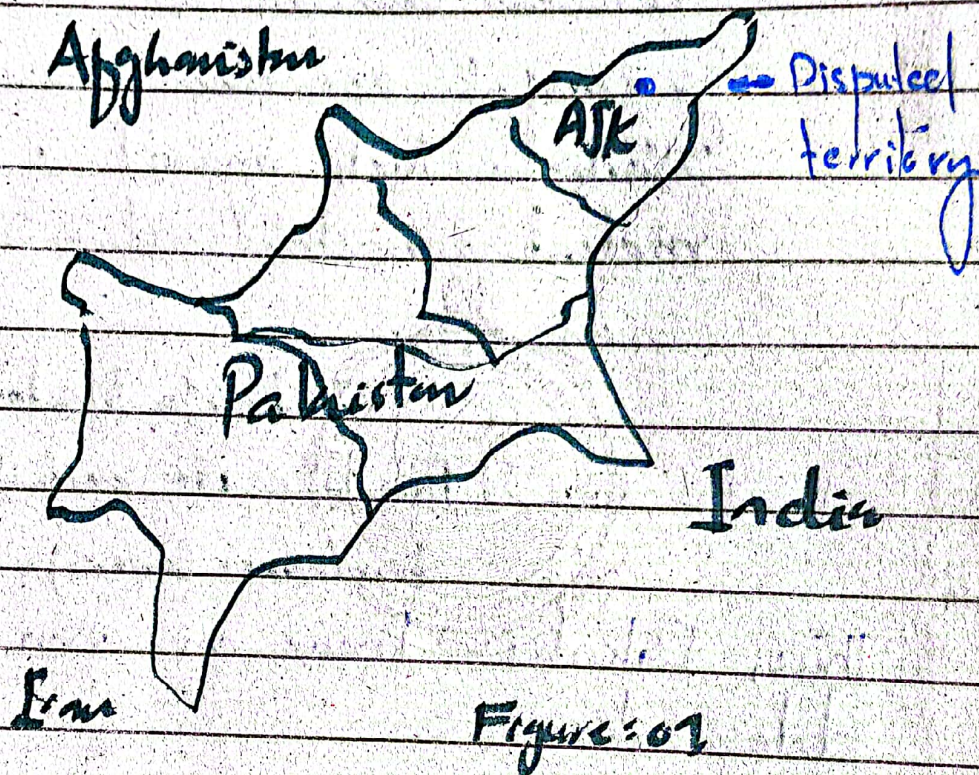 Afghanistan
AJK
Disputed
territory
Pakistan
India
Iran
Figure:01